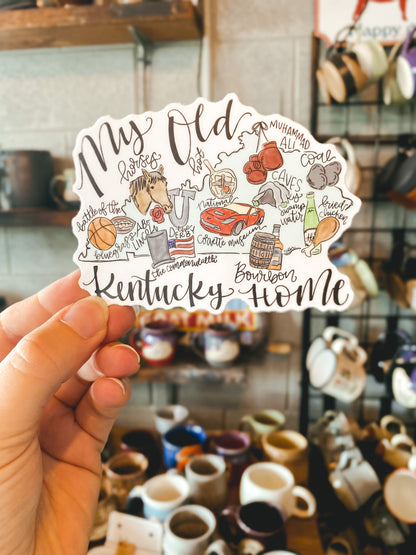 My Old
horses
MUHAMMAD
ALI
coal
CAVES
swamp
water
fried
chicken
battle of the
bluegrass
Abe
Lincoln
DERBY
National
Corvette museum
the commonwealth
Bourbon
Kentucky HOME
Happy